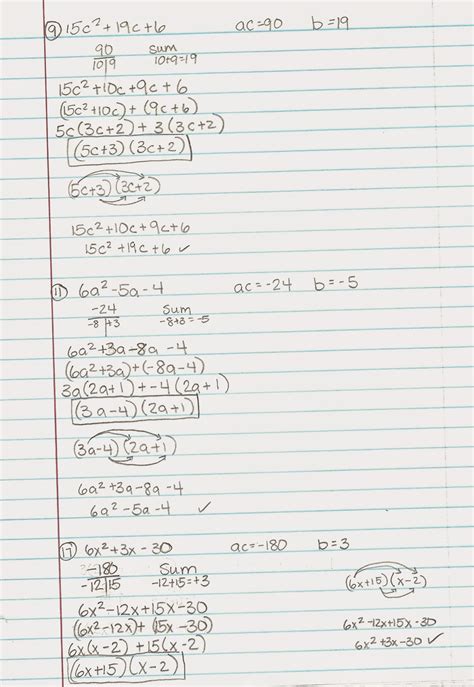 ⑨ 15c² + 19c + 6 ac=90 b=19
90 sum
10|9 10+9=19
15c² + 10c + 9c + 6
(15c² + 10c) + (9c + 6)
5c(3c+2) + 3(3c+2)
(5c+3)(3c+2)
(5c+3)(3c+2)
15c² + 10c + 9c + 6
15c² + 19c + 6 ✓
⑪ 6a² - 5a - 4 ac=-24 b=-5
-24 Sum
-8|+3 -8+3=-5
6a² + 3a - 8a - 4
(6a² + 3a) + (-8a - 4)
3a(2a+1) + -4(2a+1)
(3a-4)(2a+1)
(3a-4)(2a+1)
6a² + 3a - 8a - 4
6a² - 5a - 4 ✓
⑰ 6x² + 3x - 30 ac=-180 b=3
-180 Sum
-12|15 -12+15=+3
(6x+15)(x-2)
6x² - 12x + 15x - 30
(6x² - 12x) + (15x - 30)
6x(x-2) + 15(x-2)
(6x+15)(x-2)
6x² - 12x + 15x - 30
6x² + 3x - 30 ✓